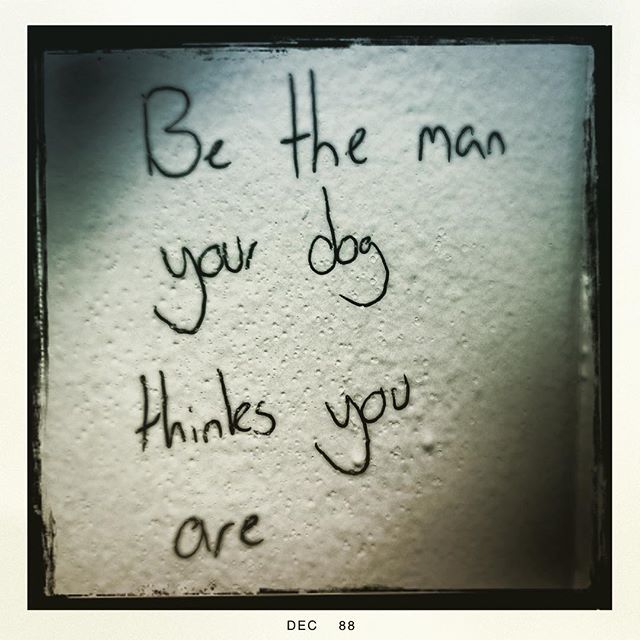 Be the man
your dog
thinks you
are
DEC 88